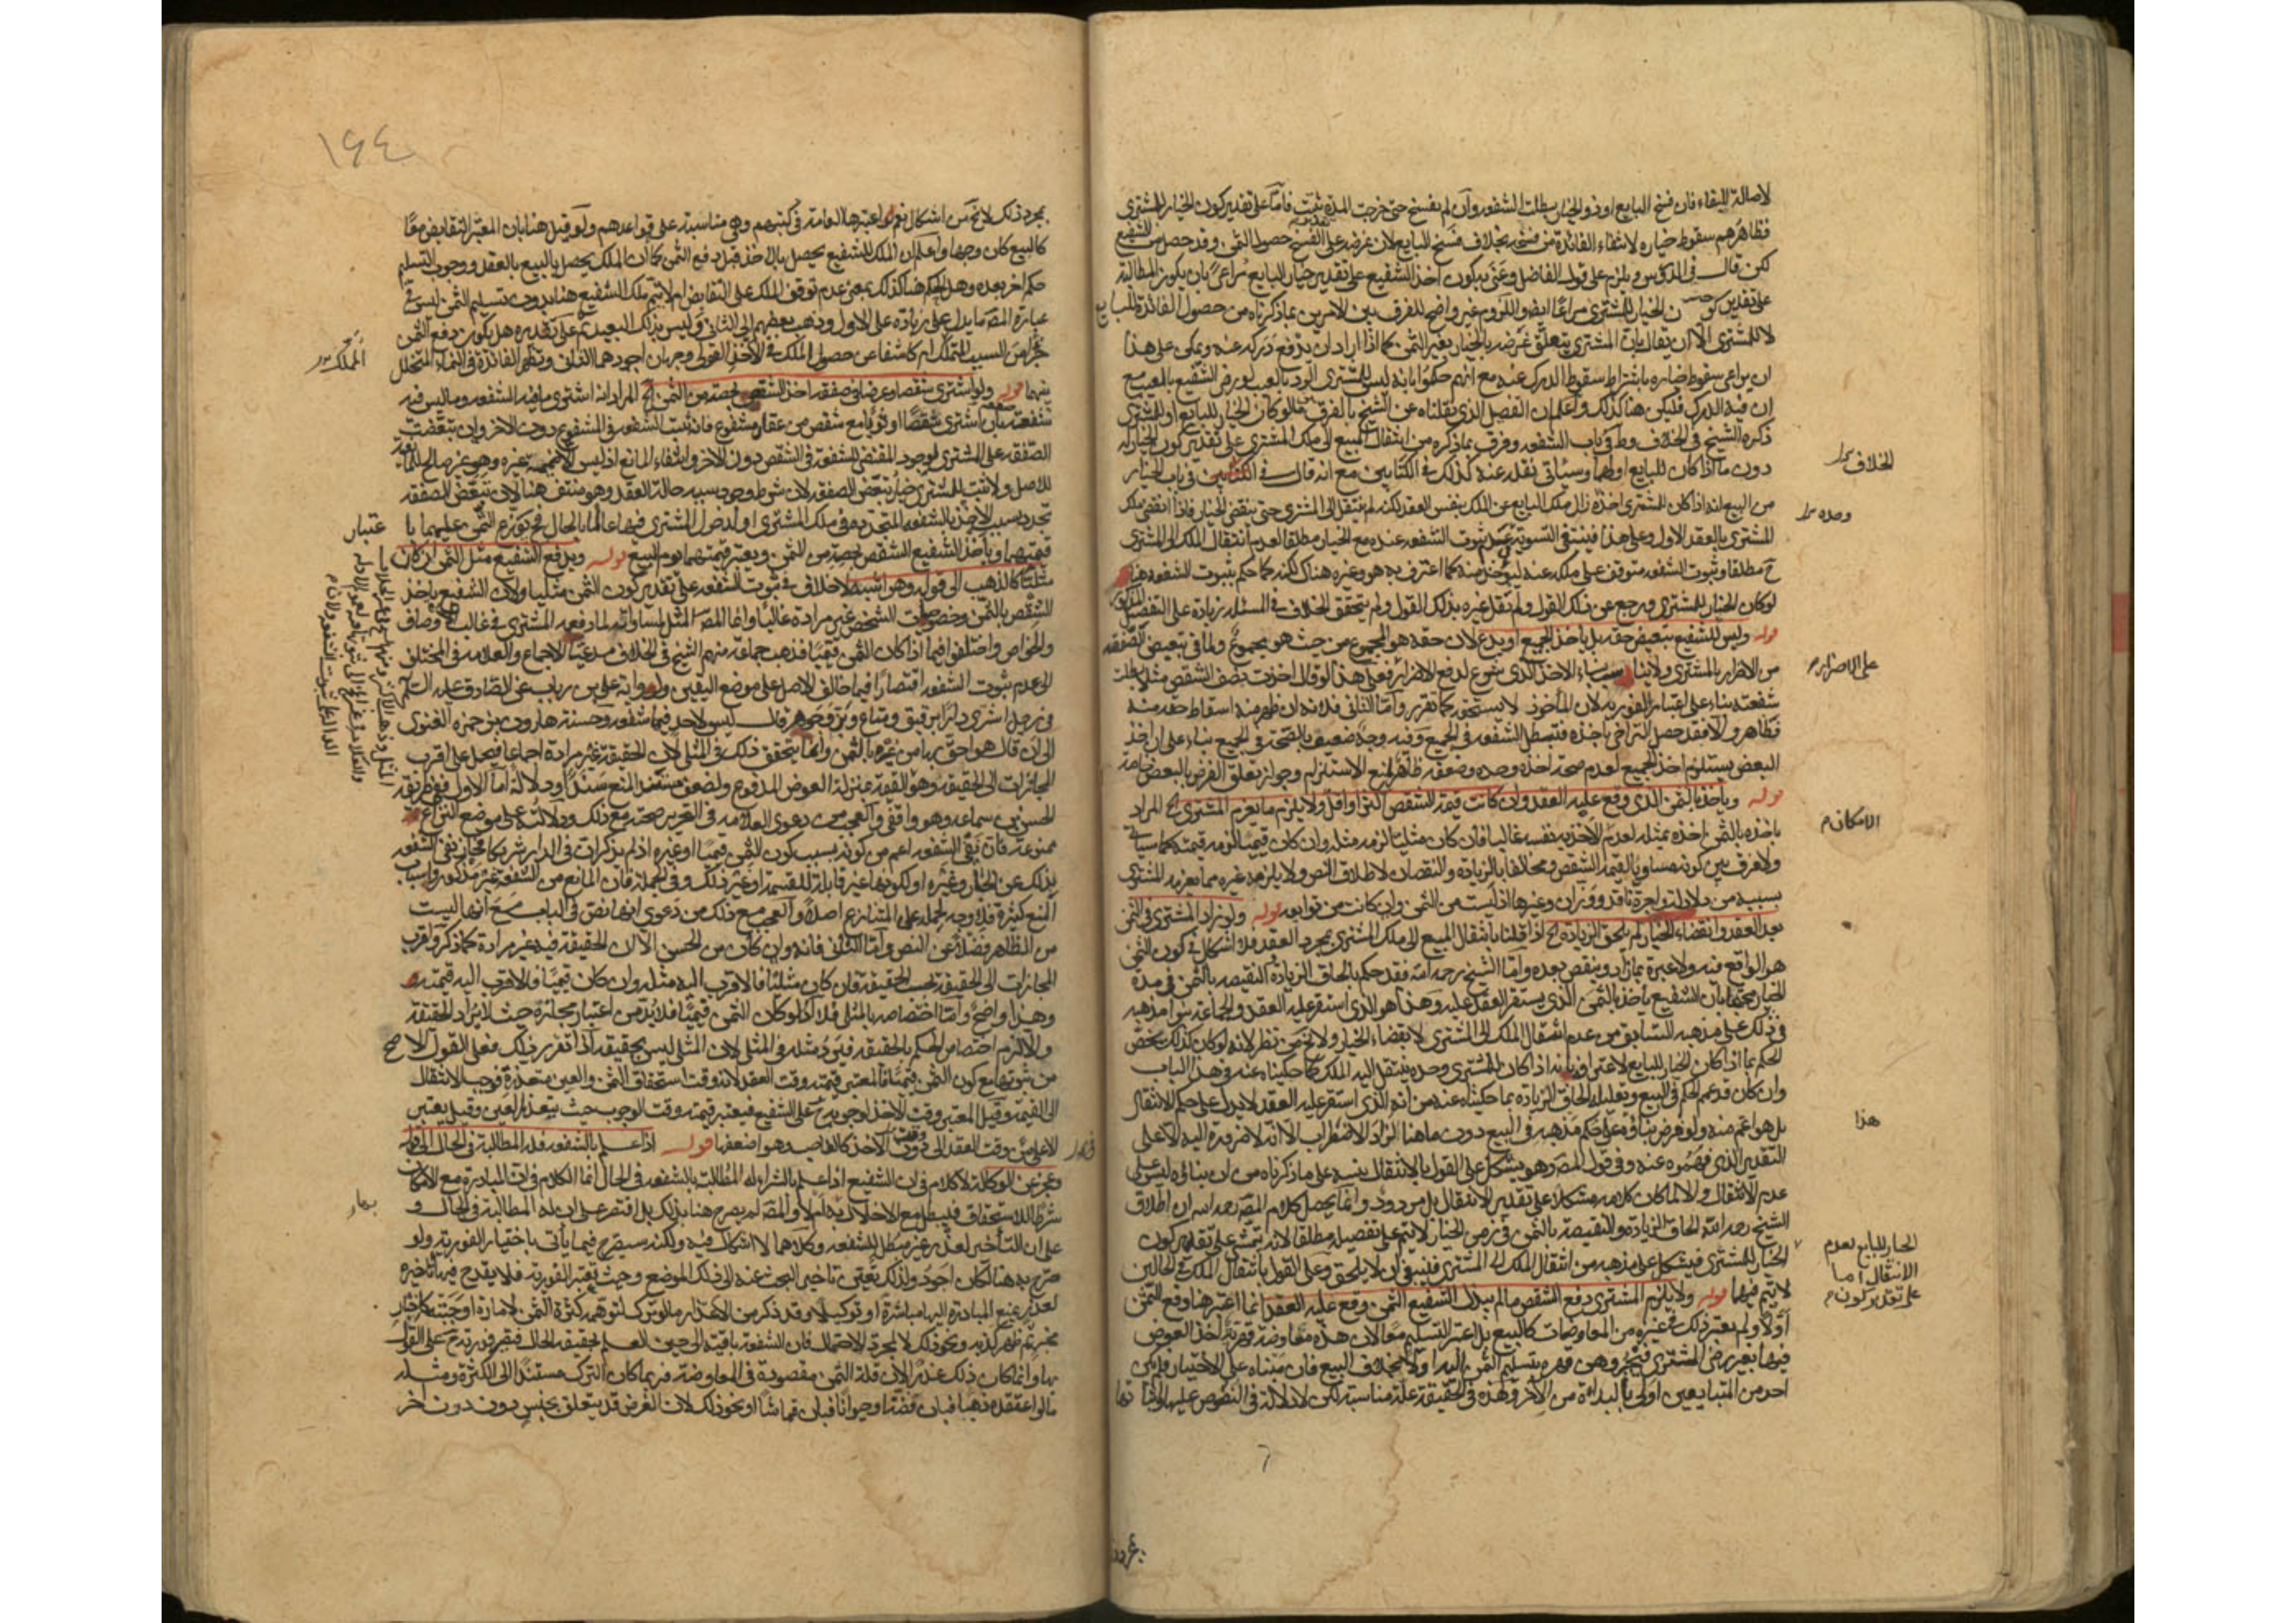 لاصالة البقاء فان فسخ البايع او ذو الخيار بطلت الشفعة وان لم يفسخ حتى خرجت المدة ثبت فاما على تقدير كون الخيار للمشترى
فظاهرهم سقوط خياره لانتفاء الفائدة من فسخه بخلاف فسخ البايع لان غرضه على تقدير الفسخ حصول الثمن وقد حصل من الشفيع
لكن قال فى الدروس ويلزم على قول الفاضل وعنى بكون اخذ الشفيع على تقدير خيار البايع مراعى بان يكون المطالبة
على تقدير كون الخيار للمشترى مراعا ايضا واللزوم غير واضح للفرق بين الامرين بما ذكرناه من حصول الفائدة للبايع
لا للمشترى الا ان يقال بان المشترى يتعلق غرضه بالخيار بغير الثمن كما اذا اراد ان يدفع دركه عنه ويمكن على هذا
ان يراعى سقوط خياره باشتراط سقوط الدرك عنه مع انهم حكموا بانه ليس للمشترى الرد بالعيب لو رضى الشفيع بالعيب مع
ان فيه الدرك فليكن هنا كذلك واعلم ان الفصل الذى نقلناه عن الشيخ بالفرق بين ما لو كان الخيار للبايع او للمشترى
ذكره الشيخ فى الخلاف وط فى باب الشفعة وفرق بما ذكره من انتقال المبيع الى ملك المشترى على تقدير كون الخيار له
دون ما اذا كان للبايع او لهما وسياتى نقله عنه كذلك فى الكتابين مع انه قال فى الكتابين فى باب الخيار
من البيع انه اذا كان للمشترى وحده زال ملك البايع عن الملك بنفس العقد لكنه لم ينتقل الى المشترى حتى ينقضى الخيار فاذا انقضى ملك
المشترى بالعقد الاول وعلى هذا فينبغى التسوية بين عدم ثبوت الشفعة عنده مع الخيار مطلقا لعدم انتقال الملك الى المشترى
ح مطلقا وثبوت الشفعة متوقف على ملكه عنه ليؤخذ منه كما اعترف به هو وغيره هناك لكنه كما حكم بثبوت الشفعة هنا
لو كان الخيار للمشترى ورجع عن ذلك القول ولم ينقل غيره بذلك القول ولم يتحقق الخلاف فى المسئلة زيادة على التفصيل المذكور
قوله وليس للشفيع تبعيض حقه بل ياخذ الجميع او يدع لان حقه هو المجموع من حيث هو مجموع ولما فى تبعيض الصفقة
من الاضرار بالمشترى ولا يناسب بناء الاخذ الذى شرع لدفع الاضرار فعلى هذا لو قال اخذت نصف الشقص مثلا بطلت
شفعته بناء على اعتبار الفورية لان المأخوذ لا يستحق كما تقرر واما الثانى فلانه ان ظهر منه اسقاط حقه منه
فظاهر والا فقد حصل التراخى باخذه فتبطل الشفعة فى الجميع وفيه وجه ضعيف بالصحة فى الجميع بناء على ان اخذ
البعض يستلزم اخذ الجميع لعدم صحة اخذه وحده وضعفه ظاهر لمنع الاستلزام وجواز تعلق الغرض بالبعض خاصة
قوله وياخذه بالثمن الذى وقع عليه العقد وان كانت قيمة الشقص اكثر او اقل ولا يلزمه ما يغرم المشترى الخ المراد
باخذه بالثمن اخذه بمثله لعدم الاخذ به نفسه غالبا فان كان مثليا لزمه مثله وان كان قيميا لزمه قيمته كما سياتى
ولا فرق بين كونه مساويا لقيمة الشقص ومخالفا بالزيادة والنقصان لاطلاق النص ولا يلزمه غيره مما يغرمه المشترى
بسببه من دلالة واجرة ناقد ووزان وغيرها اذ ليست من الثمن وان كانت من توابعه قوله ولو زاد المشترى فى الثمن
بعد العقد وانقضاء الخيار لم يلحق الزيادة الخ اذا قلنا بانتقال المبيع الى ملك المشترى بمجرد العقد فلا اشكال فى كون الثمن
هو الواقع فيه ولا عبرة بما زاد وينقص بعده واما الشيخ رحمه الله فقد حكم بالحاق الزيادة والنقيصة بالثمن فى مدة
الخيار محتجا بان الشفيع ياخذ بالثمن الذى يستقر العقد عليه وهذا هو الذى استقر عليه العقد والجماعة بنوا مذهبه
فى ذلك على مذهبه السابق من عدم انتقال الملك الى المشترى الا بانقضاء الخيار ولا يخ من نظر لانه لو كان كذلك يختص
الحكم بما اذا كان الخيار للبايع لاعترافه بانه اذا كان للمشترى وحده ينتقل اليه الملك كما حكيناه عنه فى هذا الباب
وان كان قد عمم الحكم فى البيع وتعليله الحاق الزيادة بما حكيناه عنه من انه الذى استقر عليه العقد لا يدل على حكم الانتقال
بل هو اعم منه ولو فرض بناؤه على حكم مذهبه فى البيع دون ما هنا لزاد الاضطراب الا انه لا ضرورة اليه لا على
التقدير الذى فهموه عنه وفى قول المص وهو يشكل على القول بالانتقال بنبيه على ما ذكرناه من ان بناؤه ليس على
عدم الانتقال والا لما كان كلامه مشكلا على تقدير الانتقال بل مردود وانما يحصل كلام المص رحمه الله ان اطلاق
الشيخ رحمه الله الحاق الزيادة والنقيصة بالثمن فى زمن الخيار لا يتم على تفصيله مطلقا لانه يتمشى على تقدير كون
الخيار للمشترى فيشكل على مذهبه من انتقال الملك الى المشترى فينبغى ان لا يلحق وعلى القول بانتقال الملك فى الحالين
لا يتم فيهما قوله ولا يلزم المشترى دفع الشقص ما لم يبذل الشفيع الثمن الذى وقع عليه العقد انما اعتبر هنا دفع الثمن
اولا ولم يعتبر ذلك فى غيره من المعاوضات كالبيع بل اعتبر التسليم معا لان هذه معاوضة قهرية اخذ العوض
فيها بغير رضى المشترى فيجبر وهن قهره بتسليم الثمن اليه اولا بخلاف البيع فان مبناه على الاختيار فلم يكن
احد من المتبايعين اولى بالبداءة من الاخر وهذه فى الحقيقة علة مناسبة لكن لا دلالة فى النصوص عليها واثباتها
الخلاف
وحده
على الاضرار م
الامكان م
هذا
الخيار للبايع لعدم
الانتقال اما
على تقدير كون م
بمجرد
١٦٤
بمجرد ذلك لا يخ من اشكال نعم اعتبرها العامة فى كتبهم وهى مناسبة على قواعدهم ولو قيل هنا بان المعتبر التقابض معا
كالبيع كان وجها واعلم ان الملك للشفيع يحصل بالاخذ قبل دفع الثمن كما ان الملك يحصل بالبيع بالعقد ووجوب التسليم
حكم اخر بعده وهل الحكم هنا كذلك بمعنى عدم توقف الملك على التقابض ام لا يتم ملك الشفيع هنا بدون تسليم الثمن ليس فى
عبارة المص ما يدل على زيادة على الاول وذهب بعضهم الى الثانى وليس بذلك البعيد ثم على تقديره هل يكون دفع الثمن
جزءا من السبب المملك ام كاشفا عن حصول الملك فى الاخذ القولى وجهان اجودهما الثانى وتظهر الفائدة فى النماء المتخلل
بينهما قوله ولو اشترى شقصا وعرضا فى صفقة اخذ الشقص بحصته من الثمن الخ المراد انه اشترى ما فيه الشفعة وما ليس فيه
شفعة بان اشترى شقصا او ثوبا مع شقص من عقار مشفوع فانه تثبت الشفعة فى المشفوع دون الاخر وان تبعضت
الصفقة على المشترى لوجود المقتضى للشفعة فى الشقص دون الاخر وانتفاء المانع اذ ليس الا ضميمة غيره وهو غير صالح للمانعية
للاصل ولا يثبت للمشترى خيار تبعض الصفقة لان شرطه وجود سببه حالة العقد وهو منتف هنا لان تبعض الصفقة
تجدد بسبب الاخذ بالشفعة المتجددة فى ملك المشترى او لدخول المشترى فيها عالما بالحال فح توزع الثمن عليهما با
قيمتهما وياخذ الشفيع الشقص بحصته من الثمن ويعتبر قيمتهما يوم البيع قوله ويدفع الشفيع مثل الثمن ان كان
مثليا كالذهب الى قوله وهو اشبه لا خلاف فى ثبوت الشفعة على تقدير كون الثمن مثليا ولان الشفيع ياخذ
الشقص بالثمن وخصوصيات الشخص غير مرادة غالبا وانما المص المثل لمساواته لما دفعه المشترى فى غالب الاوصاف
والخواص واختلفوا فيما اذا كان الثمن قيميا فذهب جماعة منهم الشيخ فى الخلاف مدعيا الاجماع والعلامة فى المختلف
الى عدم ثبوت الشفعة اقتصارا فيما خالف الاصل على موضع اليقين ولرواية على بن رياب عن الصادق عليه السلم
فى رجل اشترى دارا برقيق ومتاع وبز وجوهر قال ليس لاحد فيها شفعة وحسنة هارون بن حمزه الغنوى
الى ان قال هو احق بها من غيره بالثمن وانما يتحقق ذلك فى المثلى لان الحقيقة غير مرادة اجماعا فيحمل على اقرب
المجازات الى الحقيقة وهو القيمة منزلة العوض المدفوع ولضعف مستند المنع سندا ودلالة اما الاول ففى طريقه
الحسن بن سماعه وهو واقفى والعجب من دعوى العلامه فى التحرير صحته مع ذلك ودلالته على موضع النزاع
ممنوعة فان نفى الشفعة اعم من كونه بسبب كون الثمن قيميا او غيره اذ لم يذكر ان فى الدار شريكا فجاز نفى الشفعة
لذلك عن الجار وغيره او لكونها غير قابلة للقسمة او غير ذلك وفى الجملة فان المانع من الشفعة غير مذكور واسباب
المنع كثيرة فلا وجه لحمله على المتنازع اصلا والعجب مع ذلك من دعوى انها نص فى الباب مع انها ليست
من الظاهر فضلا عن النص واما الثانى فانه وان كان من الحسن الا ان الحقيقة فيه غير مرادة كما ذكر واقرب
المجازات الى الحقيقة بحسب الحقيقة فان كان مثليا فالاقرب اليه مثله وان كان قيميا فالاقرب اليه قيمته
وهذا واضح واما اختصاصه بالمثلى فلا اذ لو كان الثمن قيميا فلا بد من اعتبار مجازه حيث لا يراد الحقيقة
والا لزم اختصاص الحكم بالحقيقة فيرد مثله فى المثلى لان المثلى ليس بحقيقة اذا تقرر ذلك فعلى القول الاصح
من ثبوتها مع كون الثمن قيميا فالمعتبر قيمته وقت العقد لانه وقت استحقاق الثمن والعين متعذرة فوجب الانتقال
الى القيمة وقيل المعتبر وقت الاخذ لوجوبه ح على الشفيع فيعتبر قيمته وقت الوجوب حيث يتعذر العين وقيل يعتبر
الاعلى من وقت العقد الى وقت الاخذ كالغاصب وهو اضعفها قوله اذا علم بالشفعة فله المطالبة فى الحال الى قوله
وعجز عن الوكالة لا كلام فى ان الشفيع اذا علم بالشراء له المطالبة بالشفعة فى الحال انما الكلام فى ان المبادرة مع الامكان
شرط الاستحقاق فيبطل مع الاخلال به ام لا والمص لم يصرح هنا بذلك بل اقتصر على ان له المطالبة فى الحال و
على ان التأخير لعذر غير مبطل للشفعة وكلاهما لا اشكال فيه ولكنه سيصرح فيما يأتى باختيار الفورية ولو
صرح به هنا لكان اجود ولذلك تعين تاخير البحث عنه الى ذلك الموضع وحيث يعتبر الفورية فلا يقدح فيها تأخيره
لعذر يمنع المبادرة اليها مباشرة او توكيلا وقد ذكر من الاعذار ما لو ترك لتوهمه كثرة الثمن لامارة اوجبته كاخبار
مخبر ثم ظهر كذبه ونحو ذلك لا بمجرد الاحتمال فان الشفعة باقية الى حين العلم بحقيقة الحال فيعتبر فوريته ح على القول
بها وانما كان ذلك عذرا لان قلة الثمن مقصودة فى المعاوضة فربما كان الترك مستندا الى الكثرة ومثله
ما لو اعتقده ذهبا فبان فضة او حيوانا فبان قماشا او نحو ذلك لان الغرض قد يتعلق بجنس دون دون اخر
المملك
عتبار
بها